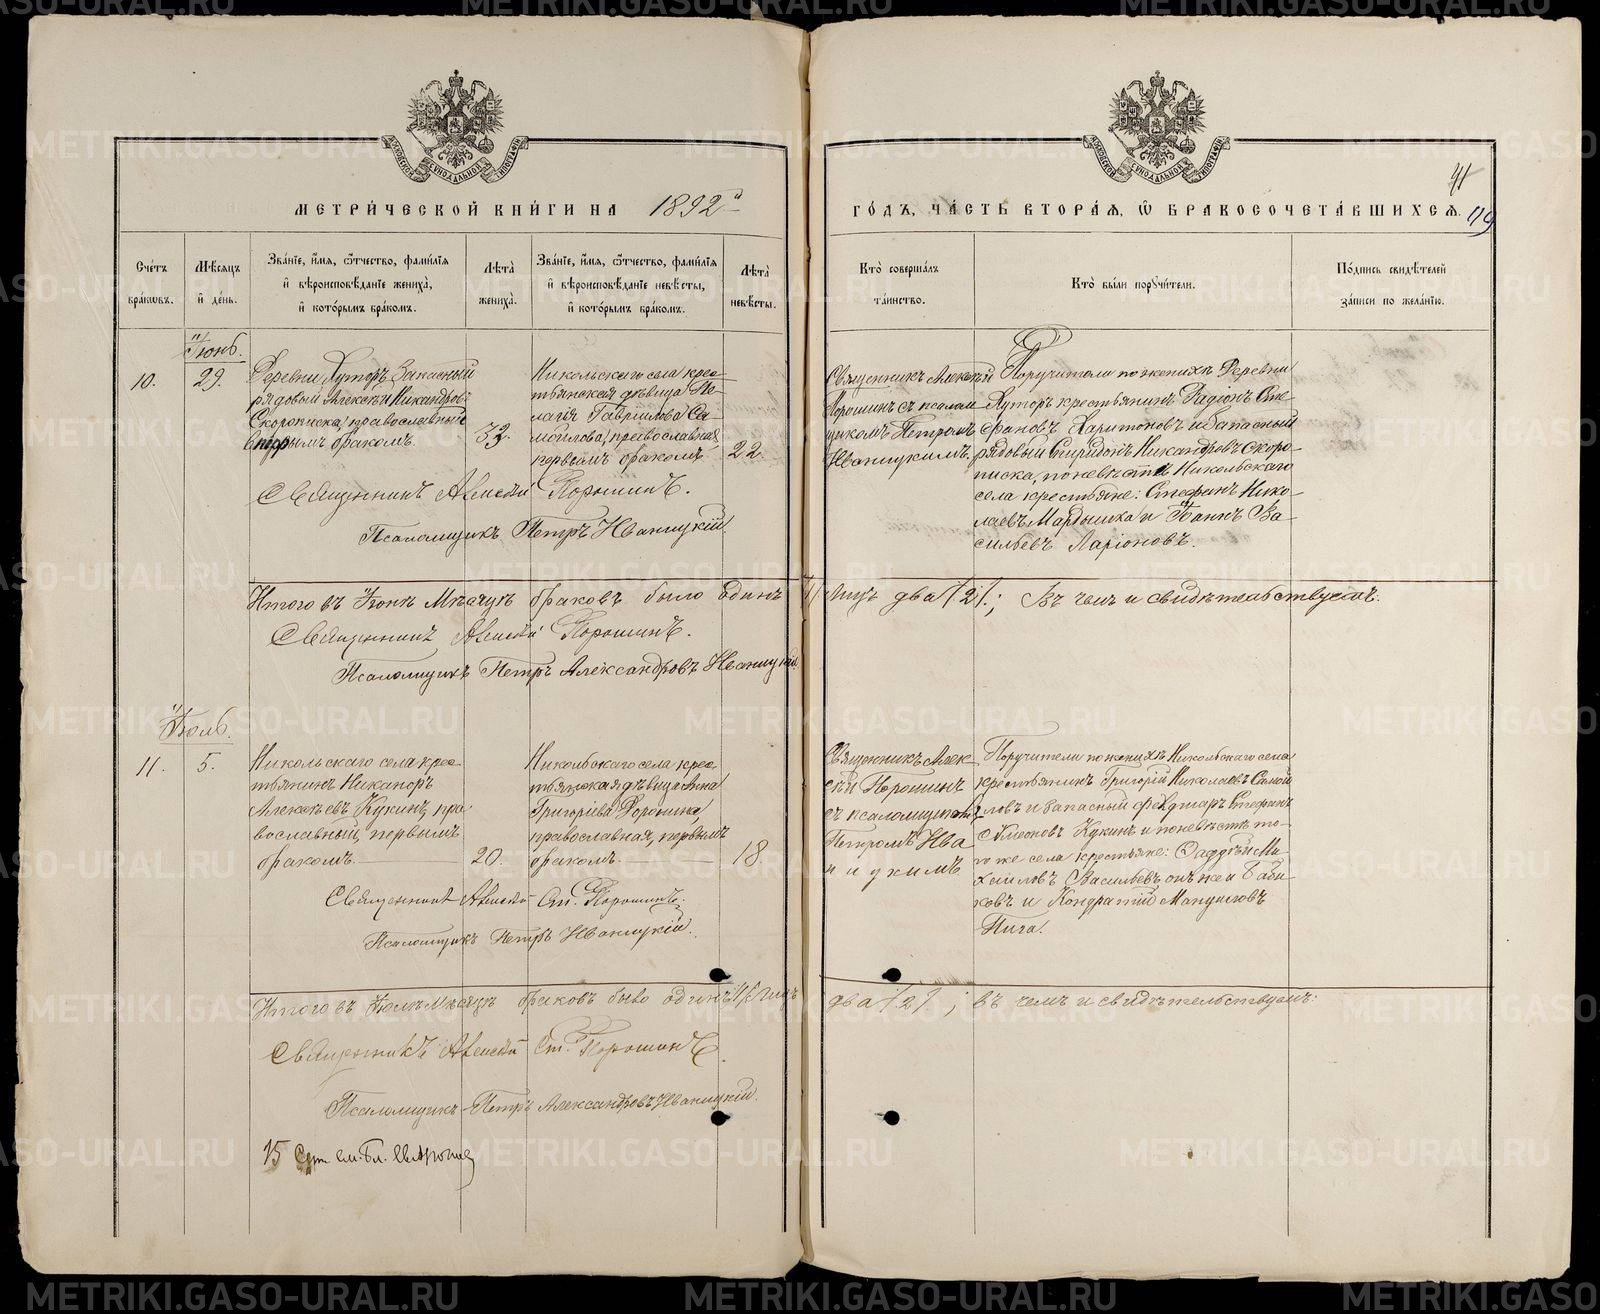 МЕТРИ́ЧЕСКОЙ КНИ́ГИ НА 1892й
ГО́ДЪ, ЧА́СТЬ ВТОРА́Я, Ѡ БРАКОСОЧЕТА́ВШИХСЯ.
41
119
Сче́тъ бра́ковъ.
Мѣ́сяцъ и҆ де́нь.
Зва́нїе, и҆́мя, ѻ҆́тчество, фами́лїя и҆ вѣроисповѣ́данїе жениха̀, и҆ кото́рымъ бра́комъ.
Лѣ́та жениха̀.
Зва́нїе, и҆́мя, ѻ҆́тчество, фами́лїя и҆ вѣроисповѣ́данїе невѣ́сты, и҆ кото́рымъ бра́комъ.
Лѣ́та невѣ́сты.
Кто̀ соверша́лъ та́инство.
Кто̀ бы́ли порꙋчи́тели.
По́дпись свидѣ́телей за́писи по жела́нїю.
Іюнь.
10.
29.
Деревни Хуторъ Запасный
рядовый Алексѣй Никандровъ
Скорописка, православный
первымъ бракомъ.
32.
Никольскаго села крес-
тьянская дѣвица Пе-
лагія Гавріилова Са-
мойлова, православная,
первымъ бракомъ.
22.
Священникъ Алексѣй
Порошинъ съ псалом-
щикомъ Петромъ
Иваницкимъ.
Поручители по женихѣ Деревни
Хуторъ крестьянинъ Радіонъ Сте-
фановъ Харитоновъ и Запасный
рядовый Спиридонъ Никандровъ Скоро-
писка, по невѣстѣ Никольскаго
села крестьяне: Стефанъ Нико-
лаевъ Мардышка и Іоаннъ Ва-
сильевъ Ларіоновъ.
Священникъ Алексѣй Порошинъ.
Псаломщикъ Петръ Иваницкій.
Итого въ Іюнѣ Мѣсяцѣ браковъ было одинъ /1/ лицъ два /2/.; Въ чемъ и свидѣтельствуемъ:
Священникъ Алексѣй Порошинъ.
Псаломщикъ Петръ Александровъ Иваницкій.
Іюль.
11.
5.
Никольскаго села крес-
тьянинъ Никаноръ
Алексѣевъ Кукинъ, пра-
вославный, первымъ
бракомъ.
20.
Никольскаго села крес-
тьянская дѣвица Анна
Григоріева Доронина,
православная, первымъ
бракомъ.
18.
Священникъ Алек-
сѣй Порошинъ
съ псаломщикомъ
Петромъ Ива
ницкимъ
Поручители по женихѣ Никольскаго села
крестьянинъ Григорій Николаевъ Самой
ловъ и Запасный Стефанъ
Симеоновъ Кукинъ и по невѣстѣ то-
го же села крестьяне: Фаддѣй Ми-
хаиловъ Васильевъ онъ же и Баби-
ковъ и Кондратій Мануиловъ
Пига.
Священникъ Алексѣй Ст. Порошинъ.
Псаломщикъ Петръ Иваницкій.
Итого въ Іюлѣ Мѣсяцѣ браковъ было одинъ /1/ лицъ два /2/.; въ чемъ и свидѣтельствуемъ:
Священникъ Алексѣй Ст. Порошинъ.
Псаломщикъ Петръ Александровъ Иваницкій.
15
METRIKI.GASO-URAL.RU